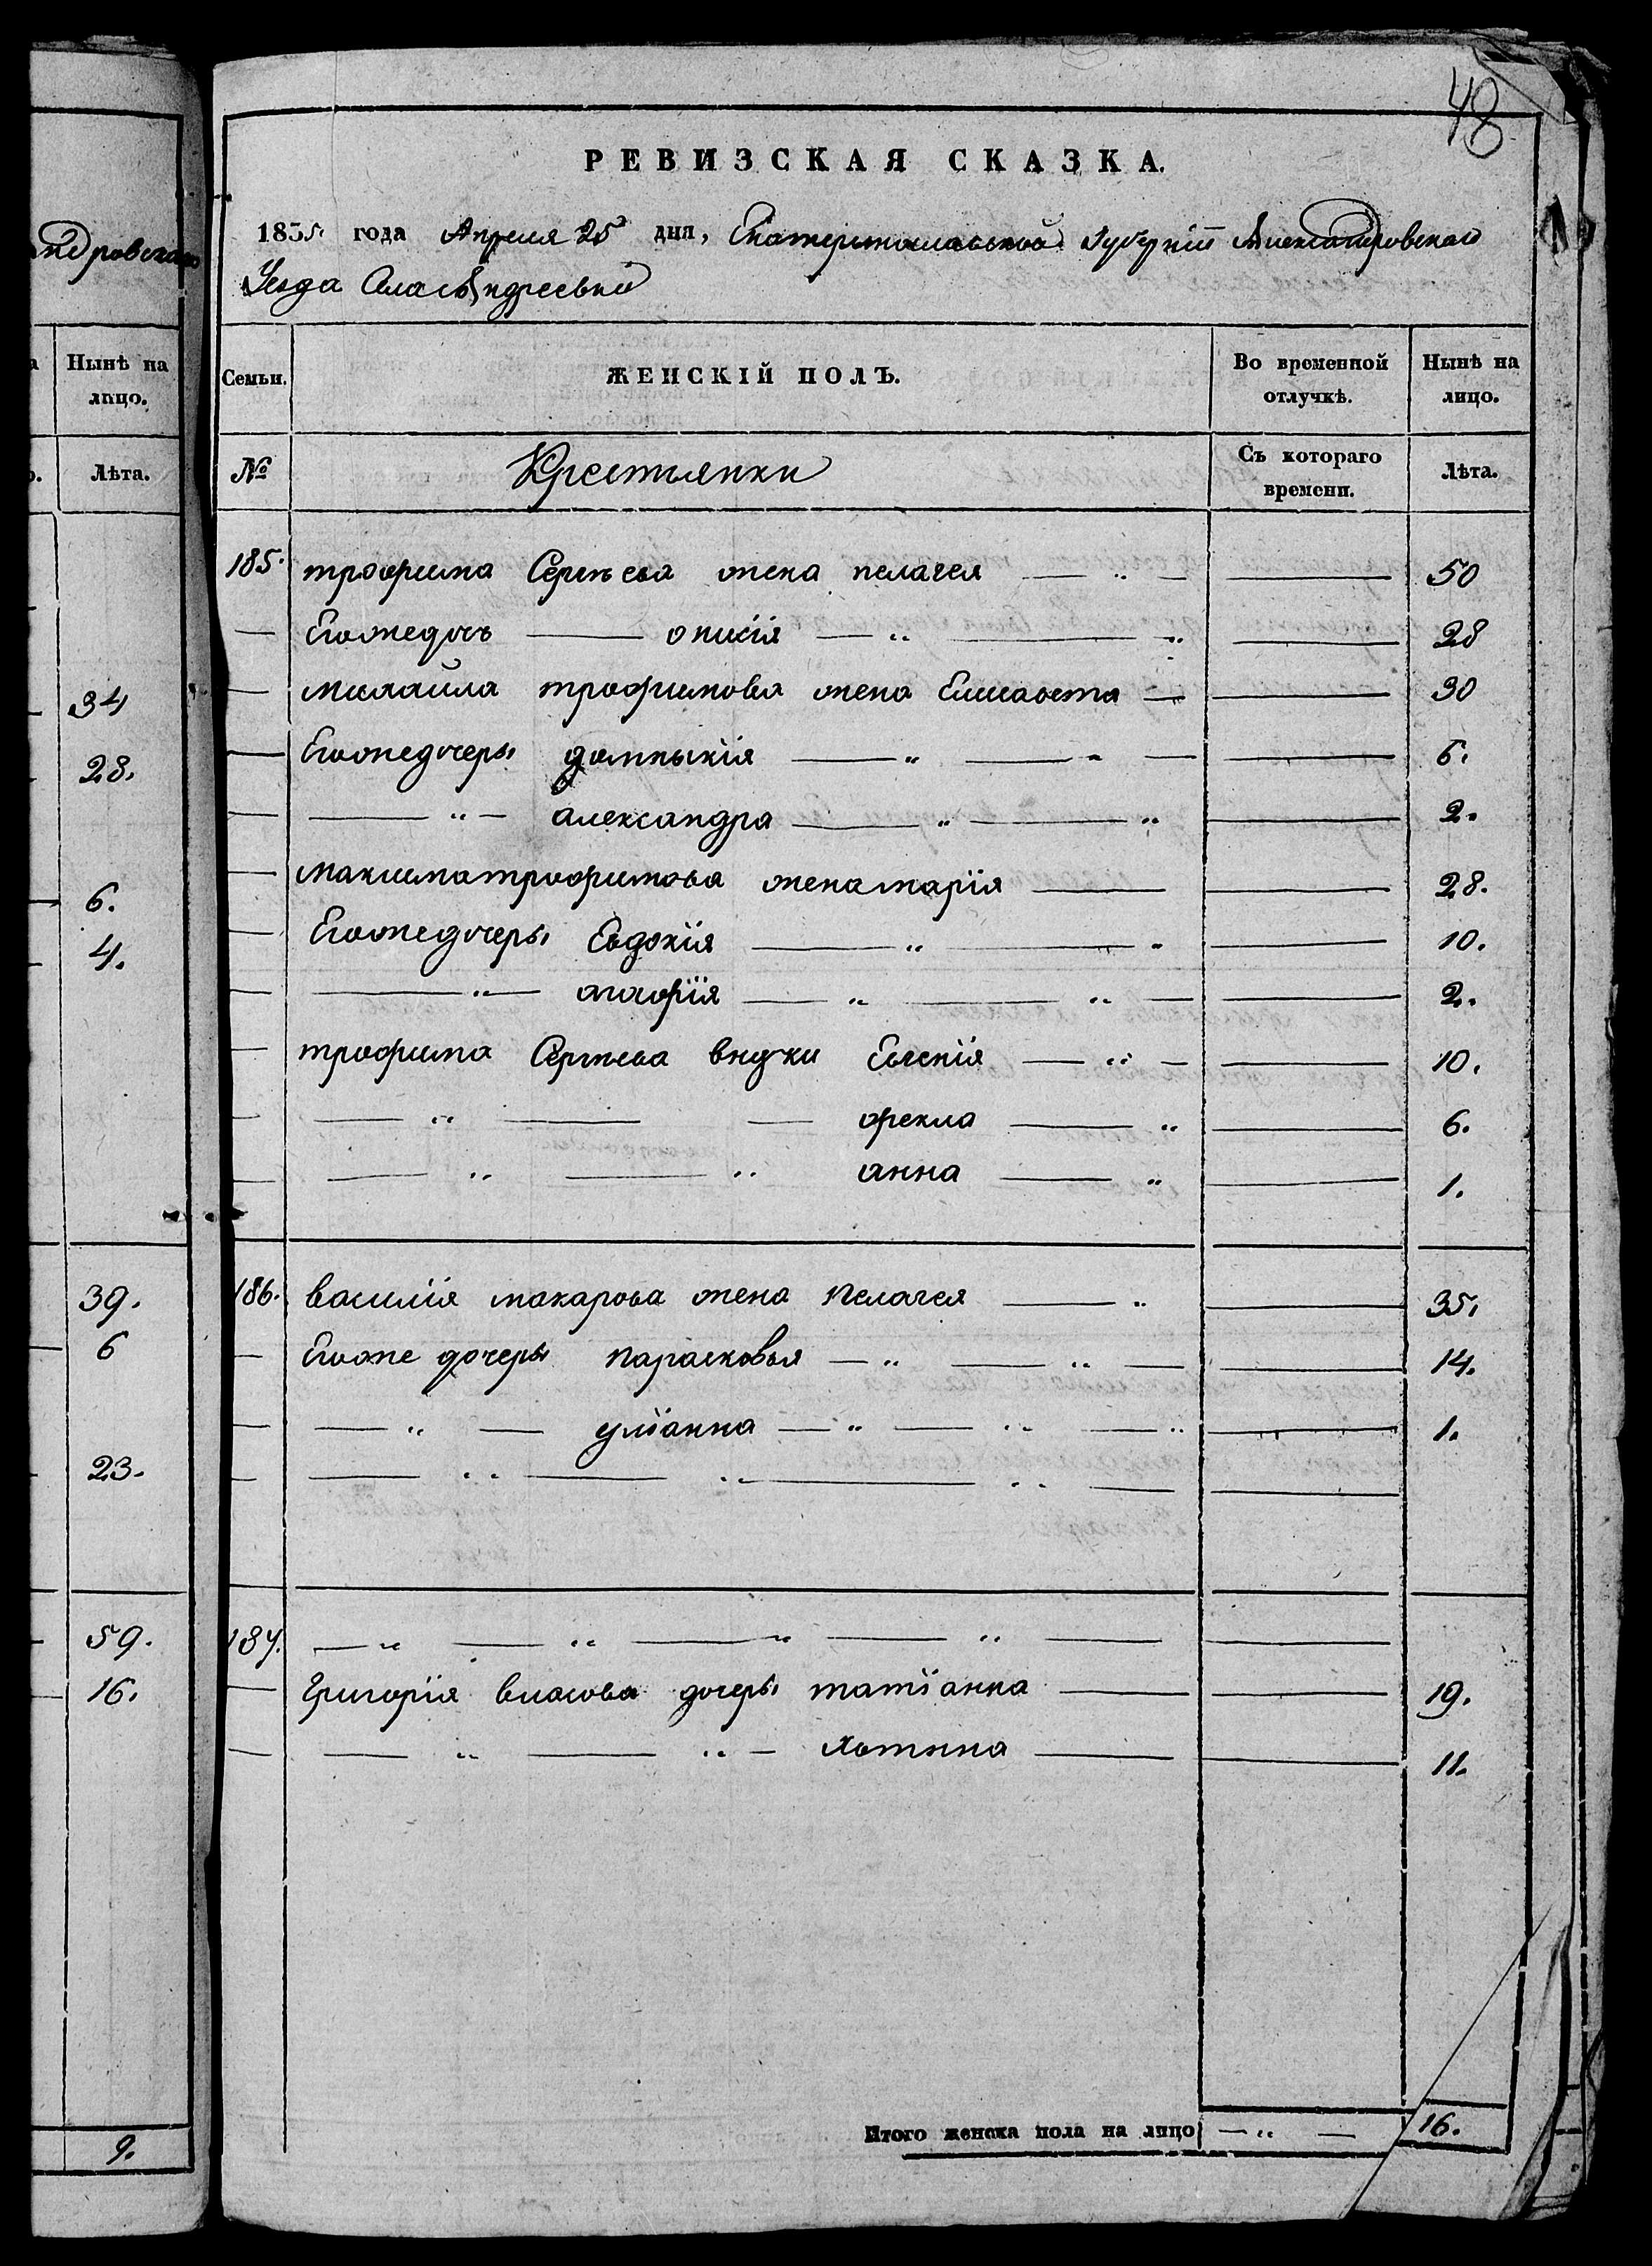 ндровскаго
Нынѣ на
лицо.
Лѣта.
34
28.
6.
4.
39.
6
23.
59.
16.
9.
48
РЕВИЗСКАЯ СКАЗКА.
1835 года Апреля 25 дня, Екатеринославской губерніи Александровскаго
Уезда Села Андреевки
Семьи. ЖЕНСКІЙ ПОЛЪ. Во временной отлучкѣ. Нынѣ на лицо.
№ Крестьянки Съ котораго времени. Лѣта.
185. трофима Сергѣева жена пелагея 50
Егожедочь 28
михаила трофимова жена Елисавета 30
Егожедочеры домныкія 6.
александра 2.
максиматрофимова женамарія 28.
Егожедочеры Евдокія 10.
2.
трофима Сергѣева внуки Евгенія 10.
фекла 6.
анна 1.
186. василія макарова жена пелагея 35.
Егоже дочеры парасковья 14.
уліанна 1.
187.
Григорія власова дочеры татіанна 19.
хотина 11.
Итого женска пола на лицо 16.